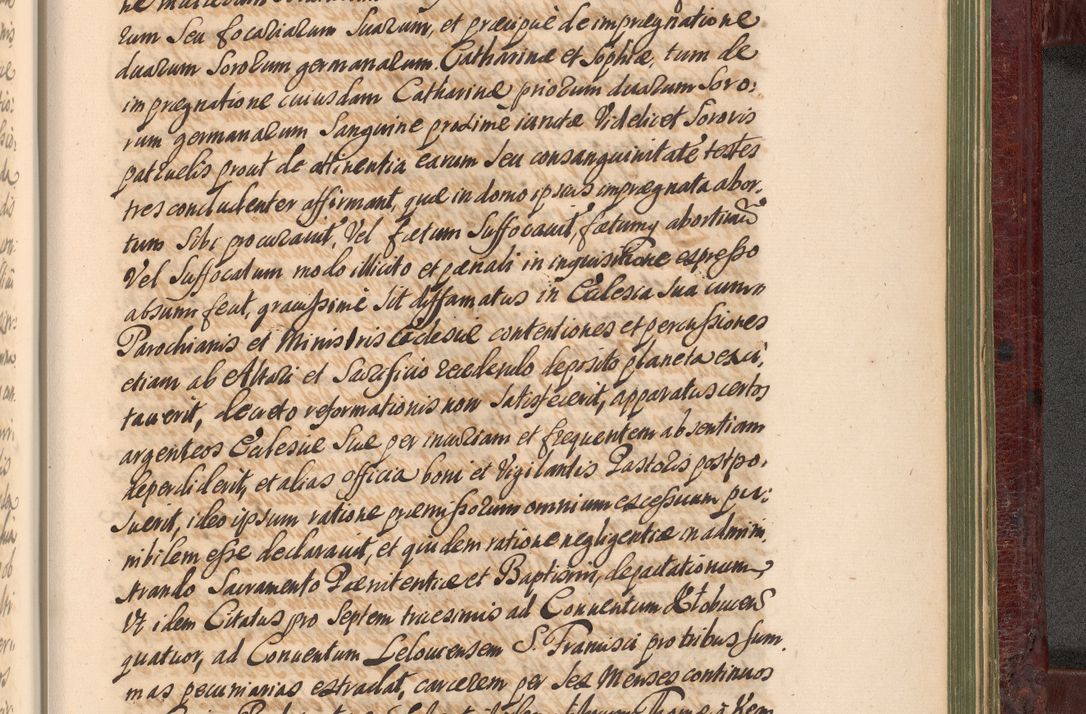 rum seu focariarum suarum, et præcipuè de imprægnatione
duarum Sororum germanarum. Catharinæ et Sophiæ, tum de
imprægnatione cuiusdam Catharinæ priorum duarum Soro,
rum germanarum Sanguine proxime iunctæ Videlicet Sororis
patruelis prout de attinentia earum seu consanguinitate testes
tres concludenter affirmant, quæ in domo ipsius imprægnata abor,
tum sibi procurauit, Vel fœtum Suffocauit, fœtumq abortiuũ
Vel Suffocatum modo illicito et pœnali in inquisitione expresso
absumpserit, grauissime sit diffamatus in Ecclesia sua cum
Parochianis et Ministris Ecclesiæ contentiones et percussiones
etiam ab Altari et Sacrificio recedendo deposito planeta exci,
tauerit, decreto reformationis non satisfecerit, apparatus certos
argenteos Ecclesiæ suæ per incuriam et frequentem absentiam
deperdiderit, et alias officia boni et Vigilantis Pastoris postpo,
suerit, ideo ipsum ratione præmissorum omnium excessuum pu,
nibilem esse declarauit, et quidem ratione negligentiæ in admini,
strando Sacramento Pœnitentiæ et Baptismi,
Vt idem Citatus pro septem tricesimis ad Conuentum
quatuor, ad Conuentum Leloucensem S. Francisci pro tribus sum,
mas pecuniarias extradat, carcerem per sex Menses continuos